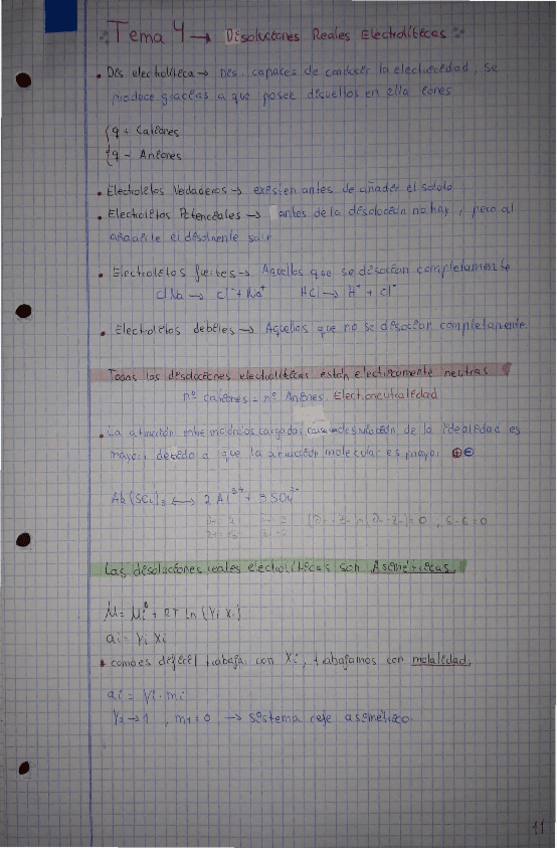 Tema 4 → Disoluciones Reales Electrolíticas
• Dis electrolítica → Dis. capaces de conducir la electricidad, se
produce gracias a que posee disueltos en ella iones
q + Cationes
q - Aniones
• Electrolitos Verdaderos → existen antes de añadir el soluto
• Electrolitos Potenciales → antes de la disolución no hay, pero al
añadirle el disolvente
• Electrolitos fuertes → Aquellos que se disocian completamente
ClNa → Cl⁻ + Na⁺ HCl → H⁺ + Cl⁻
• Electrolitos débiles → Aquellos que no se disocian completamente.
Todas las disoluciones electrolíticas están eléctricamente neutras
nº cationes = nº Aniones. Electroneutralidad
• La atracción entre moléculas cargadas de la idealidad es
mayor debido a que la atracción molecular es mayor ⊕⊖
2 Al³⁺ + 3 SO₄²⁻
= 0 ; 6 - 6 = 0
Las disoluciones reales electrolíticas son Asimétricas.
μi = μi° + RT ln (γi xi)
ai = γi xi
• como es difícil trabajar con Xi, trabajamos con molalidad.
ai = γi · mi
γ₂ → 1 , m₁ = 0 → sistema asimétrico
11